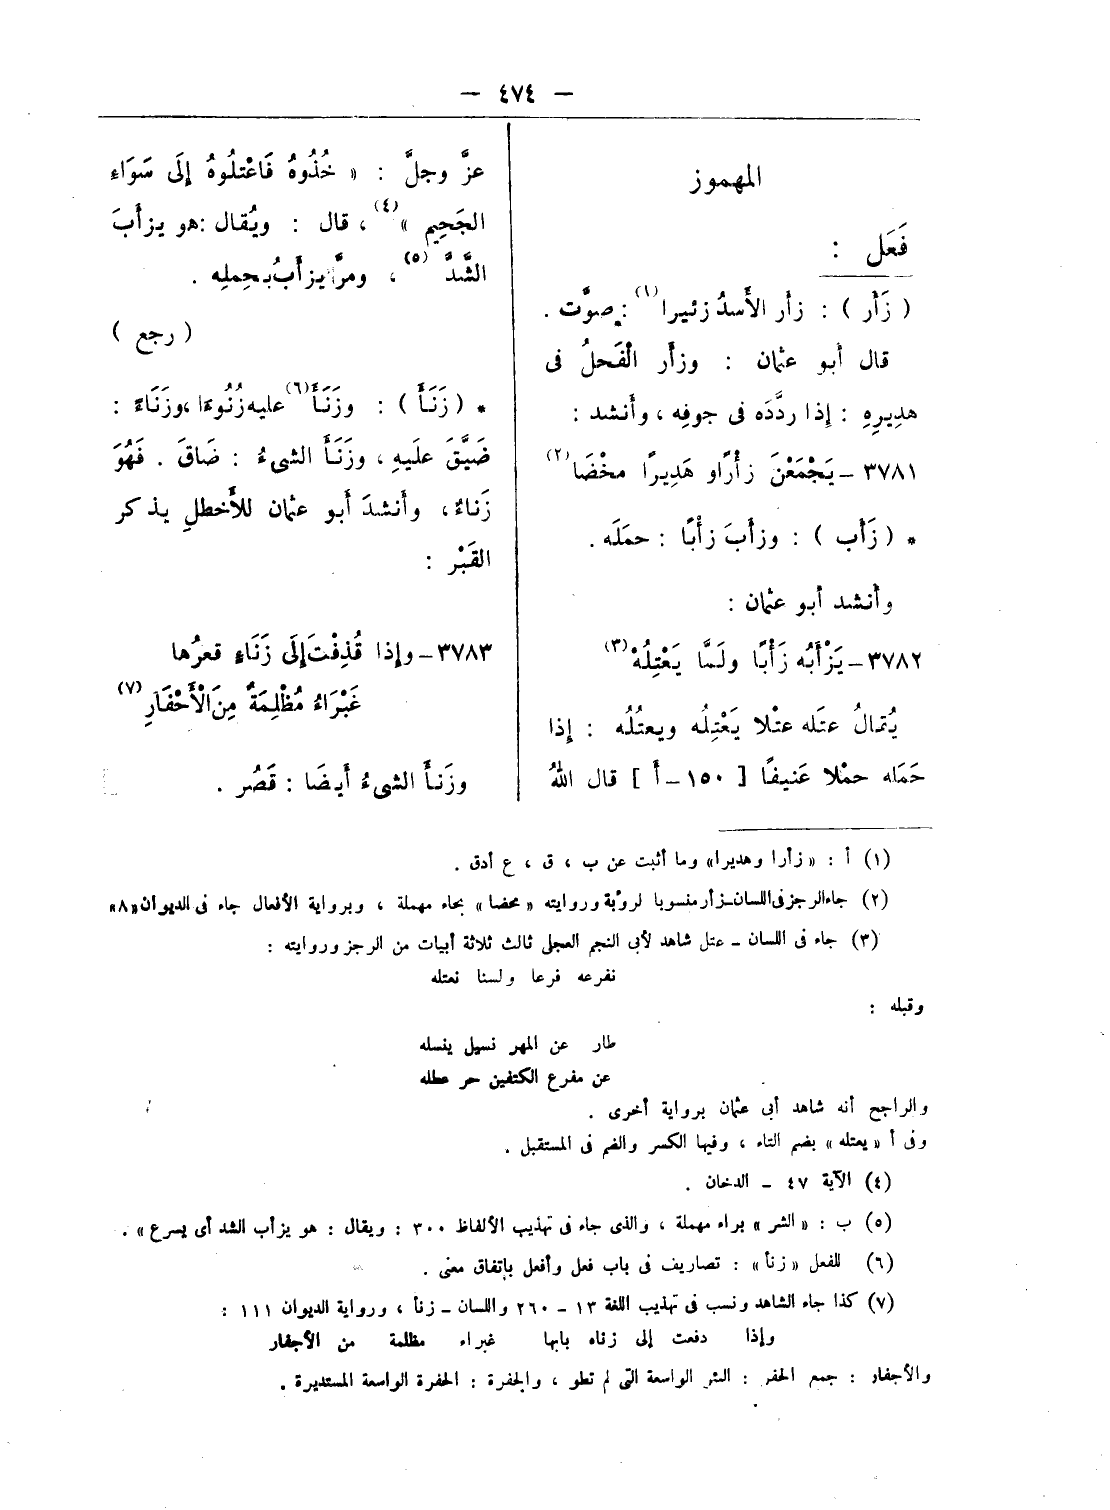 — ٤٧٤ —
المهموز
فَعَل :
( زَأَر ) : زأر الأَسدُ زئيرا(١) : صوَّت .
قال أبو عثمان : وزأَر الْفَحلُ فى
هدِيرِهِ : إِذا ردَّدَه فى جوفِه ، وأَنشد :
٣٧٨١ – يَجْمَعْنَ زأْرًاو هَدِيرًا مخْضَا(٢)
* ( زَأَب ) : وزأَبَ زأْبًا : حمَلَه .
وأَنشد أبو عثمان :
٣٧٨٢ – يَزْأَبُه زَأْبًا ولَمَّا يَعْتِلُهْ(٣)
يُقالُ عتَله عتْلا يَعْتِلُه ويعتُلُه : إِذا
حَمَله حمْلا عَنيفًا [ ١٥٠ – أ ] قال اللهُ
عزَّ وجلَّ : « خُذُوهُ فَاعْتلُوهُ إِلَى سَوَاءِ
الجَحِيمِ »(٤) ، قال : ويُقال :هو يزأَبَ
الشَّدَّ(٥) ، ومرَّ يزأَبُ بحِملِه .
( رجع )
* ( زَنَأَ ) : وزَنَأَ(٦) عليه زُنُوءًا ،وزَنَاءً :
ضَيَّقَ علَيهِ ، وزَنَأَ الشىءُ : ضَاقَ . فَهُوَ
زَناءٌ ، وأَنشدَ أَبو عثمان للأَخطلِ يذكر
القَبْر :
٣٧٨٣ – وإِذا قُذِفْتَ إِلَى زَنَاءٍ قعرُها
غَبْرَاءُ مُظْلِمَةٌ مِنَ الْأَحْفَارِ(٧)
وزَنأَ الشىءُ أَيضًا : قَصُر .
(١) أ : « زأرا وهديرا» وما أثبت عن ب ، ق ، ع أدق .
(٢) جاءالرجز فى اللسان–زأر منسوبا لرؤبة وروايته « محضا » بحاء مهملة ، وبرواية الأفعال جاء فى الديوان«٨»
(٣) جاء فى اللسان – عتل شاهد لأبى النجم العجلى ثالث ثلاثة أبيات من الرجز وروايته :
نفرعه فرعا ولسنا نعتله
وقبله :
طار عن المهر نسيل ينسله
عن مفرع الكتفين حر عطله
والراجح أنه شاهد أبى عثمان برواية أخرى .
وفى أ « يعتله » بضم التاء ، وفيها الكسر والضم فى المستقبل .
(٤) الآية ٤٧ – الدخان .
(٥) ب : « الشر » براء مهملة ، والذى جاء فى تهذيب الألفاظ ٣٠٠ : ويقال : هو يزأب الشد أى يسرع » .
(٦) للفعل « زنأ » : تصاريف فى باب فعل وأفعل بإتفاق معنى .
(٧) كذا جاء الشاهد ونسب فى تهذيب اللغة ١٣ – ٢٦٠ واللسان – زنأ ، ورواية الديوان ١١١ :
وإذا دفعت إلى زناء بابها غبراء مظلمة من الأجفار
والأجفار : جمع الجفر : البئر الواسعة التى لم تطو ، والجفرة : الحفرة الواسعة المستديرة .